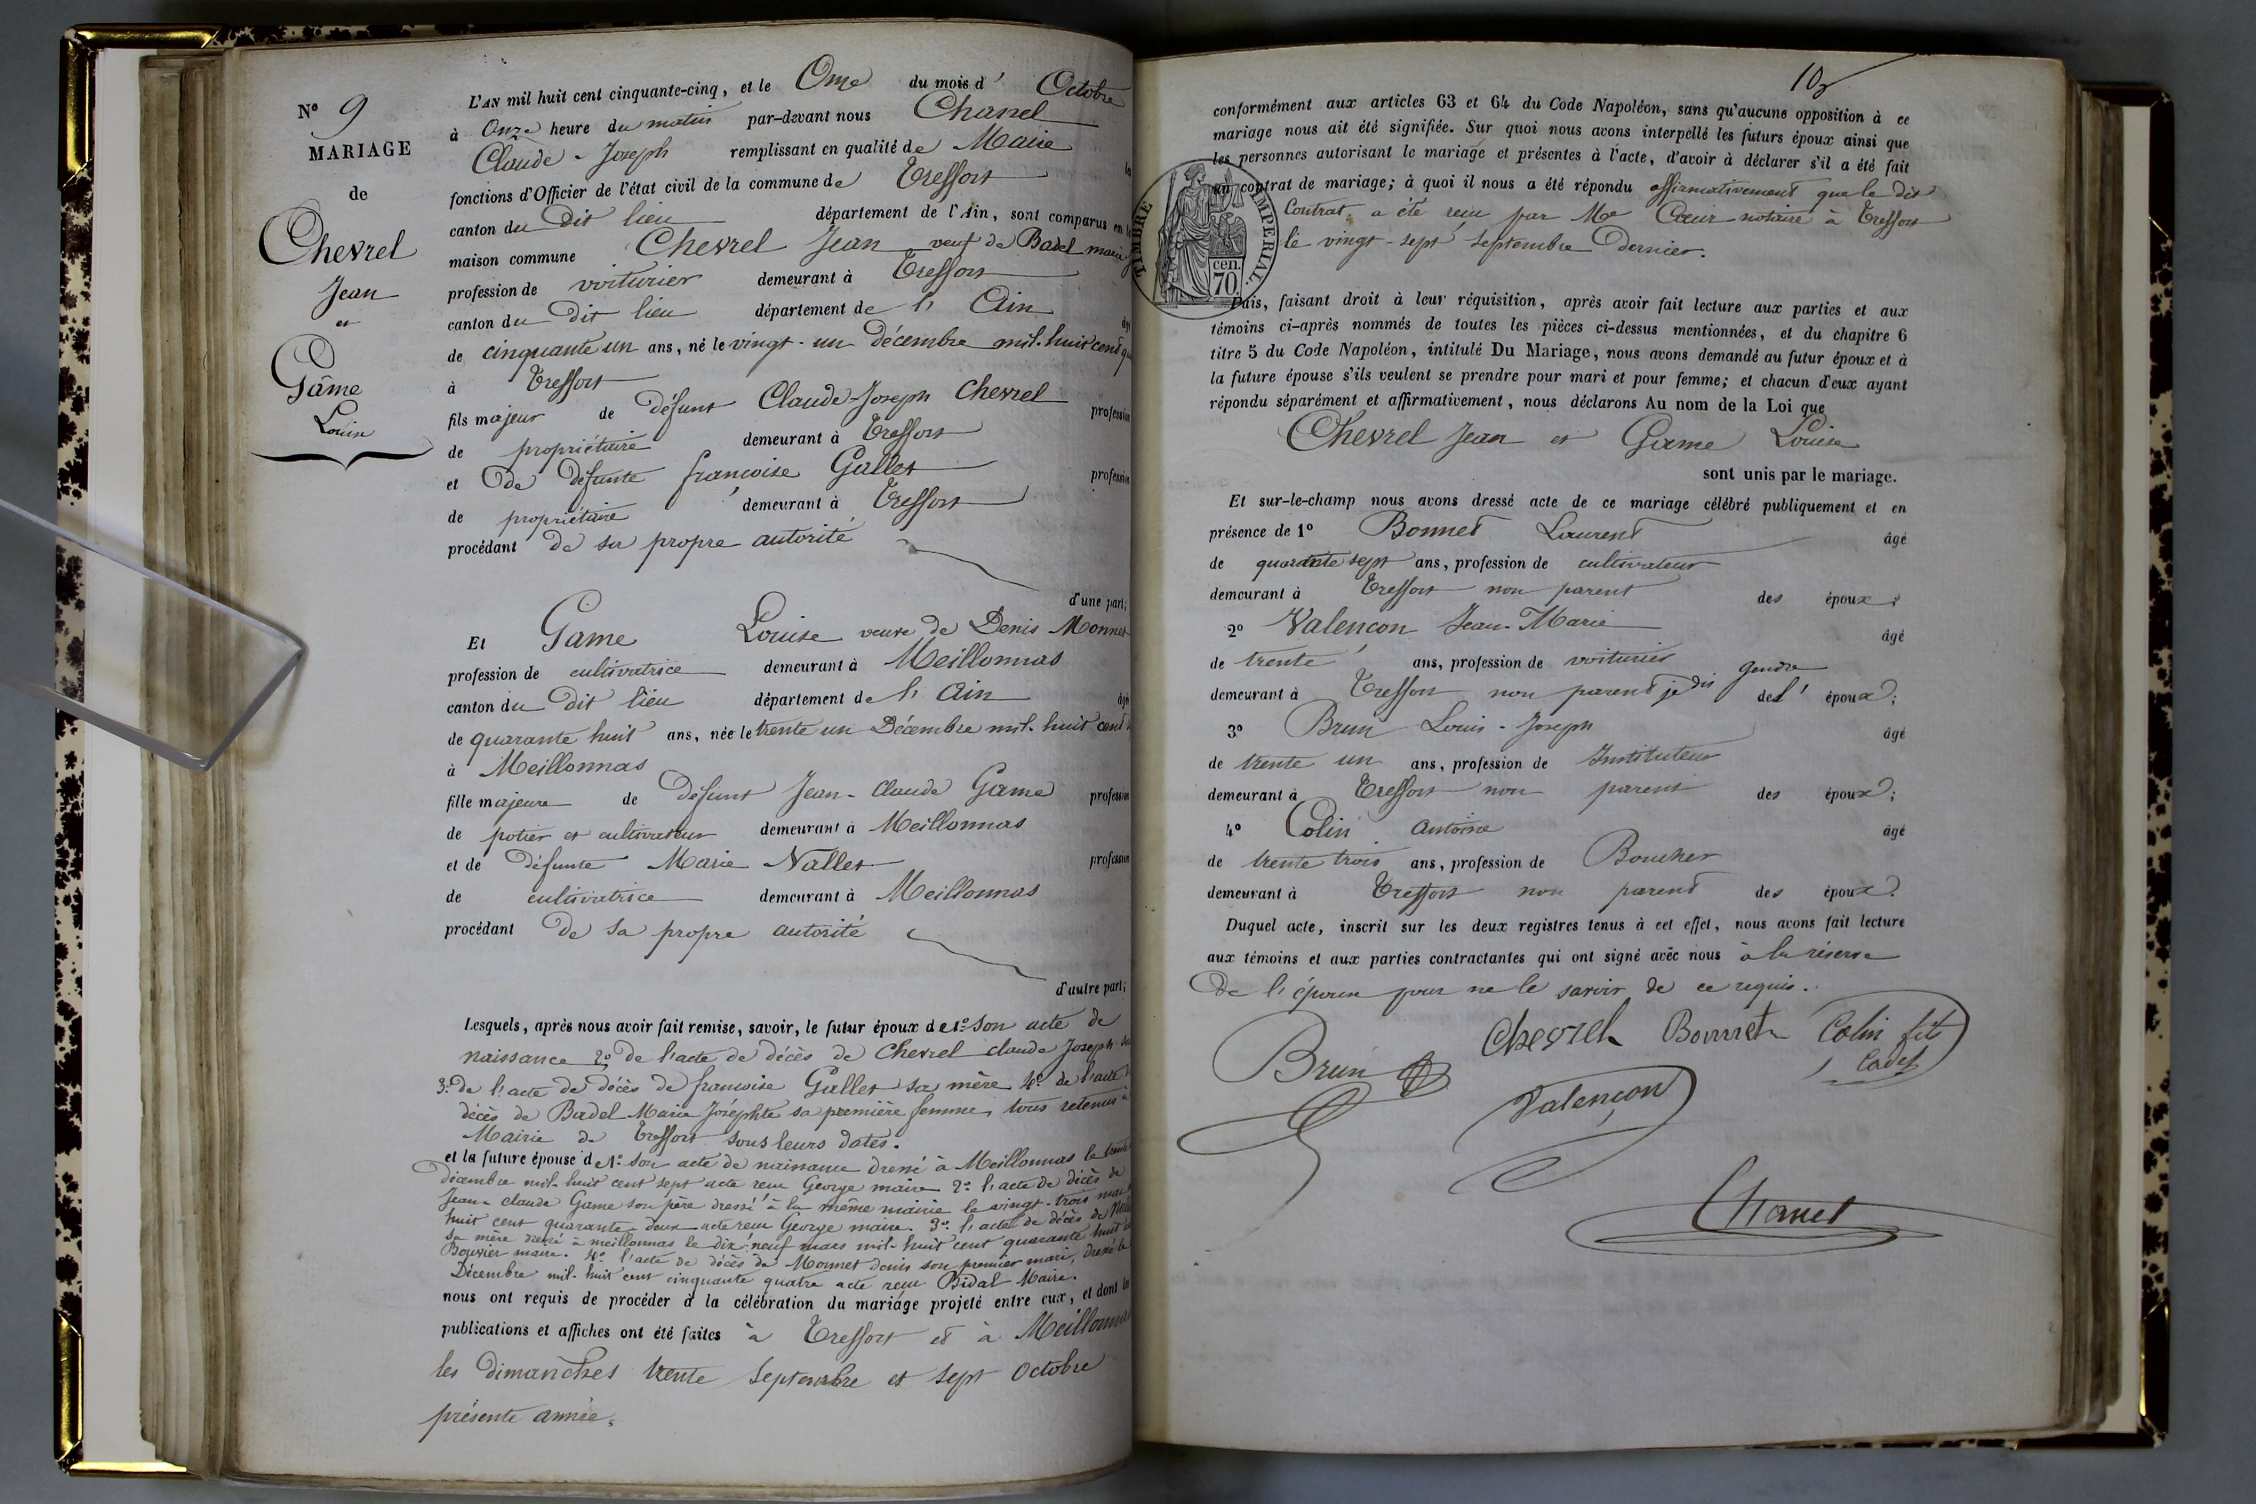 N° 9
MARIAGE
de
Chevrel
Jean
et
Game
Louise
L'AN mil huit cent cinquante-cinq, et le Onze du mois d' Octobre
à Onze heure du matin par-devant nous Chanel
Claude-Joseph remplissant en qualité de Maire
fonctions d'Officier de l'état civil de la commune de Treffort
canton du dit lieu département de l'Ain, sont comparus en
maison commune Chevrel Jean veuf de Badel marie
profession de voiturier demeurant à Treffort
canton du dit lieu département de l'Ain
de cinquante un ans, né le vingt-un décembre mil-huit cent
à Treffort
fils majeur de défunt Claude-Joseph Chevrel profession
de propriétaire demeurant à Treffort
et De défunte françoise Gallet profession
de propriétaire demeurant à Treffort
procédant de sa propre autorité
d'une part;
Et Game Louise veuve de Denis Monnet
profession de cultivatrice demeurant à Meillonnas
canton du dit lieu département de l'Ain
de quarante huit ans, née le trente un Décembre mil-huit cent
à Meillonnas
fille majeure de défunt Jean-Claude Game profession
de potier et cultivateur demeurant à Meillonnas
et de défunte Marie Nallet profession
de cultivatrice demeurant à Meillonnas
procédant de sa propre autorité
d'autre part;
Lesquels, après nous avoir fait remise, savoir, le futur époux de 1° son acte de
naissance 2° de l'acte de décès de Chevrel claude Joseph
3° de l'acte de décès de francoise Gallet sa mère 4° de l'acte
décès de Badel Marie Joséphte sa première femme, tous retenus
Mairie de Treffort sous leurs dates.
et la future épouse de 1° son acte de naissance dressé à Meillonnas le
décembre mil-huit cent sept acte reçu George maire 2° l'acte de décès de
Jean-claude Game son père dressé à la même mairie le vingt-trois
huit cent quarante-deux acte reçu George maire. 3° l'acte de décès de
sa mère dressé à meillonnas le dix-neuf mars mil-huit cent quarante huit
Bouvier maire. 4° l'acte de décès de Monnet denis son premier mari, dressé le
Décembre mil-huit cent cinquante quatre acte reçu Bidal Maire.
nous ont requis de procéder à la célébration du mariage projeté entre eux, et dont les
publications et affiches ont été faites à Treffort et à Meillonnas
les dimanches trente Septembre et sept Octobre
présente année.
conformément aux articles 63 et 64 du Code Napoléon, sans qu'aucune opposition à ce
mariage nous ait été signifiée. Sur quoi nous avons interpellé les futurs époux ainsi que
les personnes autorisant le mariage et présentes à l'acte, d'avoir à déclarer s'il a été fait
un contrat de mariage; à quoi il nous a été répondu affirmativement que le dit
Contrat a été reçu par Me Cœur notaire à Treffort
le vingt-sept septembre Dernier.
TIMBRE IMPERIAL.
cen.
70
Puis, faisant droit à leur réquisition, après avoir fait lecture aux parties et aux
témoins ci-après nommés de toutes les pièces ci-dessus mentionnées, et du chapitre 6
titre 5 du Code Napoléon, intitulé Du Mariage, nous avons demandé au futur époux et à
la future épouse s'ils veulent se prendre pour mari et pour femme; et chacun d'eux ayant
répondu séparément et affirmativement, nous déclarons Au nom de la Loi que
Chevrel Jean et Game Louise
sont unis par le mariage.
Et sur-le-champ nous avons dressé acte de ce mariage célébré publiquement et en
présence de 1° Bonnet Laurent âgé
de quarante sept ans, profession de cultivateur
demeurant à Treffort non parent des époux;
2° Valençon Jean-Marie âgé
de trente ans, profession de voiturier
demeurant à Treffort non parent je dis gendre de l'époux;
3° Brun Louis-Joseph âgé
de trente un ans, profession de Instituteur
demeurant à Treffort non parent des époux;
4° Colin antoine âgé
de trente trois ans, profession de Boucher
demeurant à Treffort non parent des époux.
Duquel acte, inscrit sur les deux registres tenus à cet effet, nous avons fait lecture
aux témoins et aux parties contractantes qui ont signé avec nous à la réserve
De l'épouse pour ne le savoir de ce requis.
Brun Chevrel Bonnet Colin fils
Cadet
Valençon
Chanel